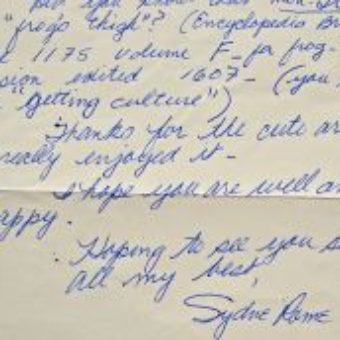 did you know that
"frogs thigh"? (Encyclopedia Br
1175 volume F - for frog -
sion edited 1607 - (you
"getting culture")
Thanks for the cute ar
really enjoyed it -
I hope you are well an
appy.
Hoping to see you s
all my best,
Sydne Rome